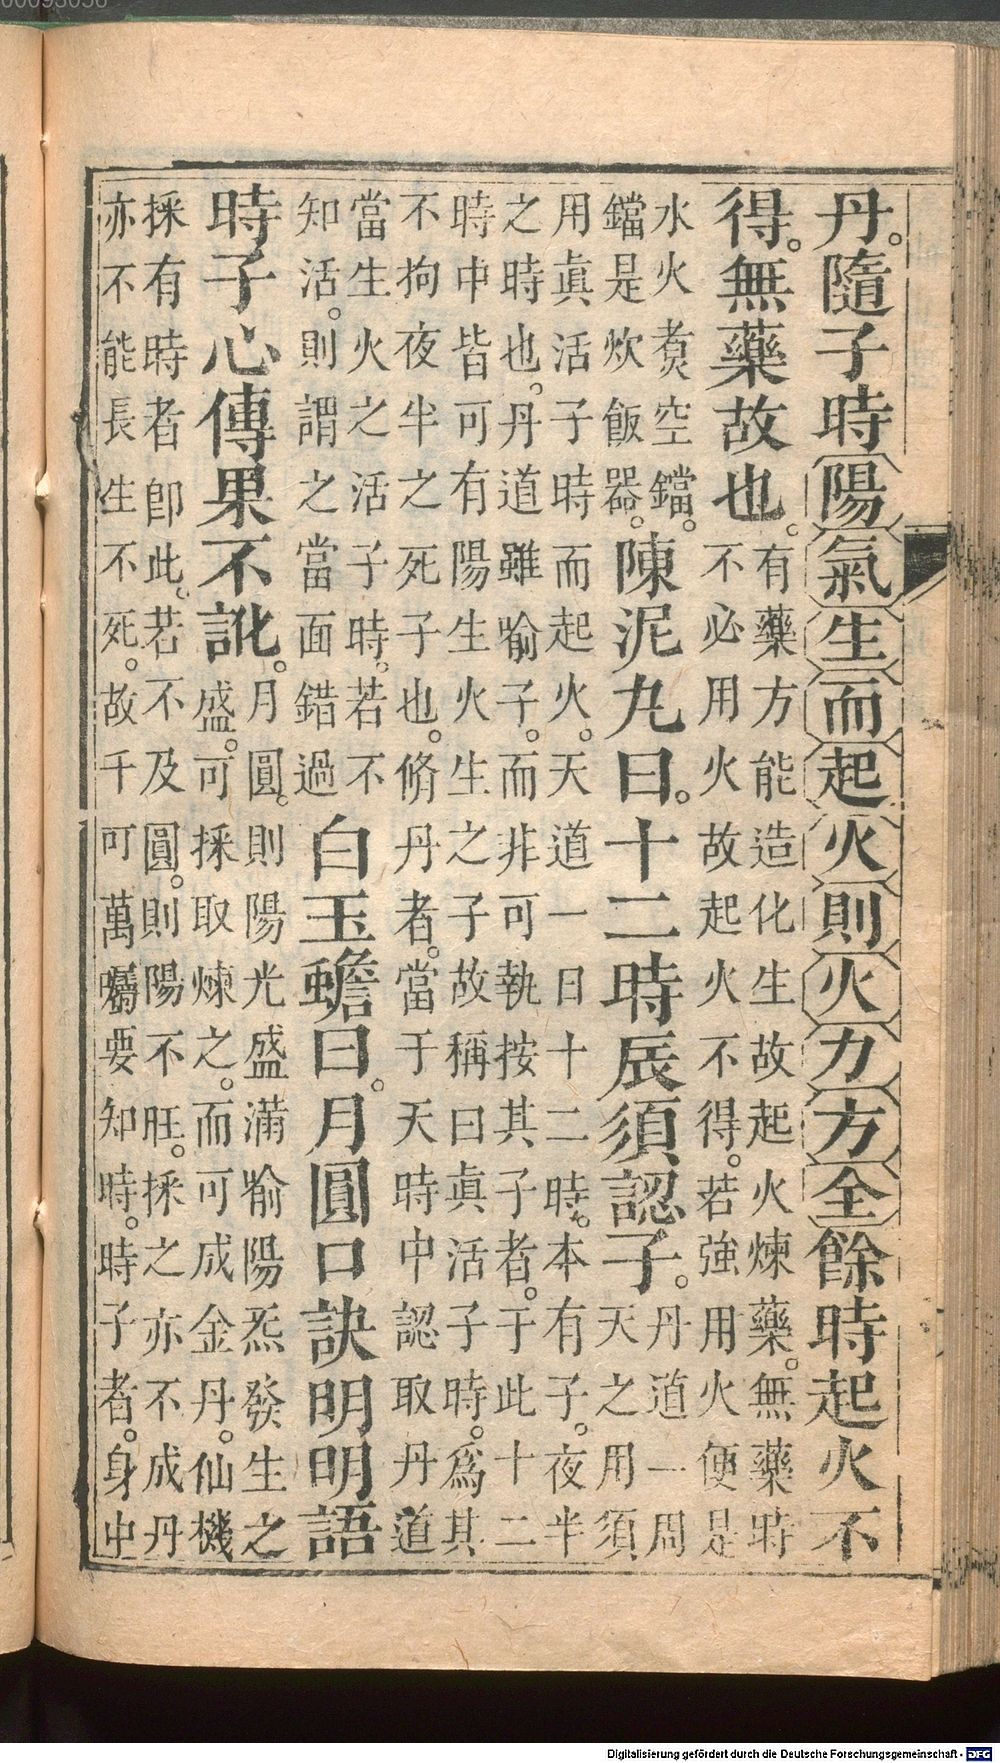 丹。隨子時陽氣生而起火則火力方全餘時起火不
得。無藥故也。
有藥方能造化生故起火煉藥。無藥時
不必用火故起火不得。若強用火便是
水火煑空鐺。
鐺是炊飯器。
陳泥丸曰。十二時辰須認子。
丹道一周
天之用須
用眞活子時而起火。天道一日十二時。本有子。夜半
之時也。丹道雖喻子。而非可執按其子者。于此十二
時中皆可有陽生火生之子故稱曰眞活子時。爲其
不拘夜半之死子也。脩丹者。當于天時中認取丹道
當生火之活子時。若不
知活。則謂之當面錯過
白玉蟾曰。月圓口訣明明語
時子心傳果不訛。
月圓。則陽光盛滿喻陽炁發生之
盛。可採取煉之。而可成金丹。仙機
採有時者卽此。若不及圓。則陽不旺。採之亦不成丹
亦不能長生不死。故千可萬囑要知時。時子者。身中
Digitalisierung gefördert durch die Deutsche Forschungsgemeinschaft - DFG